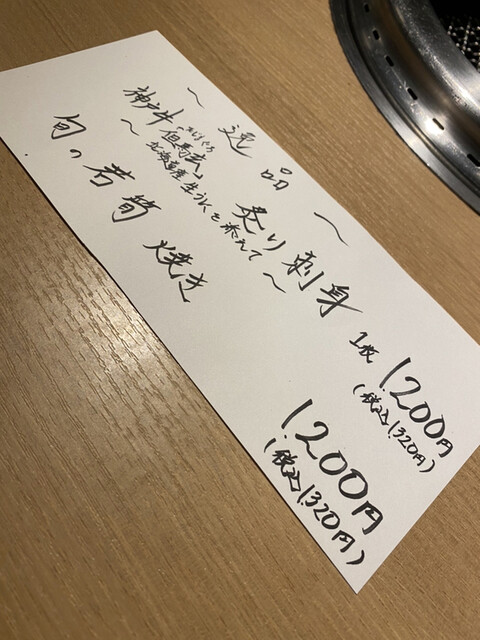 〜 逸品 〜
たじまぐろ
神戸牛 但馬玄 炙り刺身 1枚 1.200円
〜北海道産生うにを添えて〜
(税込1.320円)
旬の若筍 焼き 1.200円
(税込1.320円)